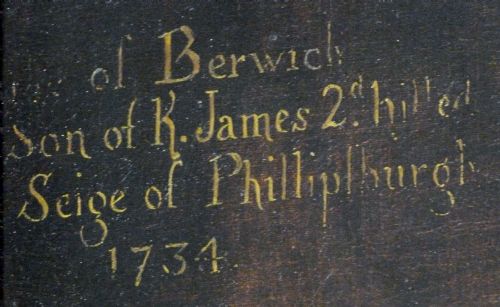 of Berwick
Son of K. James 2.d killed
Seige of Phillipsburgh
1734.